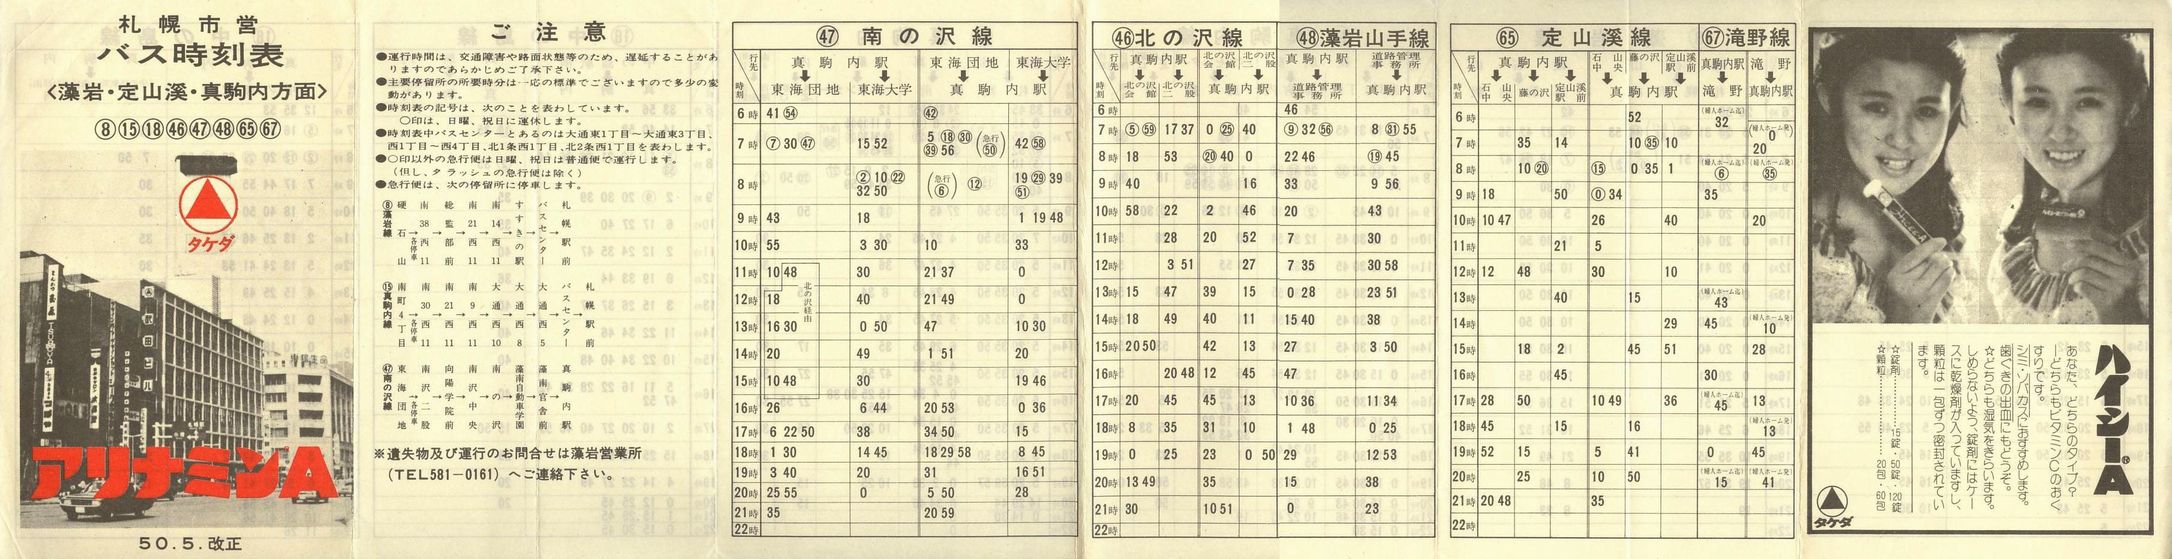 札幌市営
バス時刻表
<藻岩・定山溪・真駒内方面>
⑧⑮⑱㊻㊼㊽65 67
タケダ
アリナミンA
50.5.改正
ご注意
●運行時間は、交通障害や路面状態等のため、遅延することがあ
りますのであらかじめご了承下さい。
●主要停留所の所要時分は一応の標準でございますので多少の変
動があります。
●時刻表の記号は、次のことを表わしています。
○印は、日曜、祝日に運休します。
●時刻表中バスセンターとあるのは大通東1丁目～大通東3丁目、
西1丁目～西4丁目、北1条西1丁目、北2条西1丁目を表わします。
●○印以外の急行便は日曜、祝日は普通便で運行します。
(但し、タ ラッシュの急行便は除く)
●急行便は、次の停留所に停車します。
⑧藻岩線
⑮真駒内線
㊼南の沢線
※遺失物及び運行のお問合せは藻岩営業所
(TEL581－0161)へご連絡下さい。
㊼ 南の沢線
行先 時刻
真駒内駅 東海団地 東海大学
東海団地 東海大学 真駒内駅
6時 41 54 42
7時 ⑦ 30 ㊼ 15 52 5 ⑱ ㉚ (急行 50) 39 56 42 58
8時 ② 10 ㉒ 32 50 (急行 ⑥) ⑫ 19 ㉙ 39 51
9時 43 18 1 19 48
10時 55 3 30 10 33
11時 10 48 30 21 37 0
12時 18 40 21 49 0
13時 16 30 0 50 47 10 30
14時 20 49 1 51 20
15時 10 48 30 19 46
16時 26 6 44 20 53 0 36
17時 6 22 50 38 34 50 15
18時 1 30 14 45 18 29 58 8 45
19時 3 40 20 31 16 51
20時 25 55 0 5 50 28
21時 35 20 59
22時
北の沢経由
㊻北の沢線 ㊽藻岩山手線
行先 時刻
真駒内駅 北の沢会館 北の沢二股 真駒内駅 道路管理事務所
北の沢会館 北の沢二股 真駒内駅 道路管理事務所 真駒内駅
6時 46
7時 ⑤ 59 17 37 0 ㉕ 40 ⑨ 32 56 8 ㉛ 55
8時 18 53 ⑳ 40 0 22 46 ⑲ 45
9時 40 16 33 9 56
10時 58 22 2 46 20 43
11時 28 20 52 7 30
12時 3 51 27 7 35 30 58
13時 15 47 39 15 0 28 23 51
14時 18 49 40 11 15 40 38
15時 20 50 42 13 27 3 50
16時 20 48 12 45 47
17時 20 45 45 13 10 36 11 34
18時 8 35 31 10 1 48 0 25
19時 0 25 23 0 50 29 12 53
20時 13 49 35 15 38
21時 30 10 51 0 23
22時
65 定山溪線 67滝野線
行先 時刻
真駒内駅 石山中央 藤の沢 定山溪駅前 真駒内駅 滝野
石山中央 藤の沢 定山溪駅前 真駒内駅 滝野 真駒内駅
6時 52 (婦人ホーム迄) 32
7時 35 14 10 ㉟ 10 (婦人ホーム発) 0 20
8時 10 ⑳ ⑮ 0 35 1 (婦人ホーム迄) ⑥ (婦人ホーム発) ㉟
9時 18 50 ⓪ 34 35
10時 10 47 26 40 20
11時 21 5
12時 12 48 30 10
13時 40 15 (婦人ホーム迄) 43
14時 29 45 (婦人ホーム発) 10
15時 18 2 45 51 28
16時 45 30
17時 28 50 10 49 36 (婦人ホーム迄) 45 13
18時 45 15 16 (婦人ホーム発) 13
19時 52 15 5 41 0 45
20時 25 10 50 (婦人ホーム迄) 15 (婦人ホーム発) 41
21時 20 48 35
22時
ハイシーA®
あなた、どちらのタイプ?
―どちらもビタミンCのおく
すりです。
シミ・ソバカスにおすすめします。
歯ぐきの出血にもどうぞ。
☆どちらも湿気をきらいます。
しめらないよう、錠剤にはケー
スに乾燥剤が入っていますし、
顆粒は一包ずつ密封されてい
ます。
☆錠剤………15錠・50錠・120錠
☆顆粒………20包・60包
タケダ